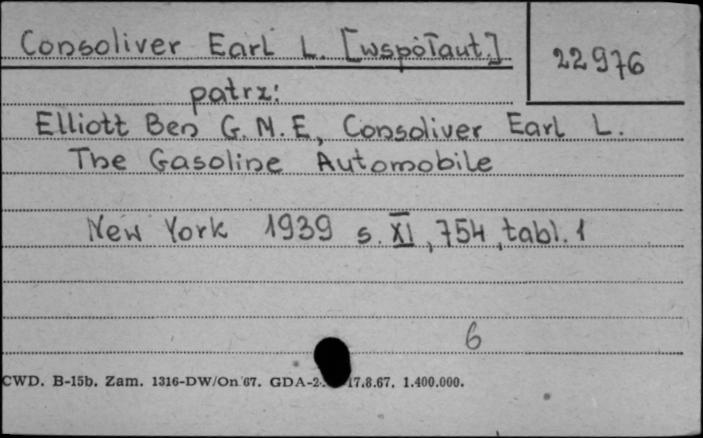 Consoliver Earl L. [współaut.]
22976
patrz:
Elliott Ben G. M.E., Consoliver Earl L.
The Gasoline Automobile
New York 1939 s. XI, 754, tabl. 1
6
CWD. B-15b. Zam. 1316-DW/On 67. GDA-2 17.8.67. 1.400.000.